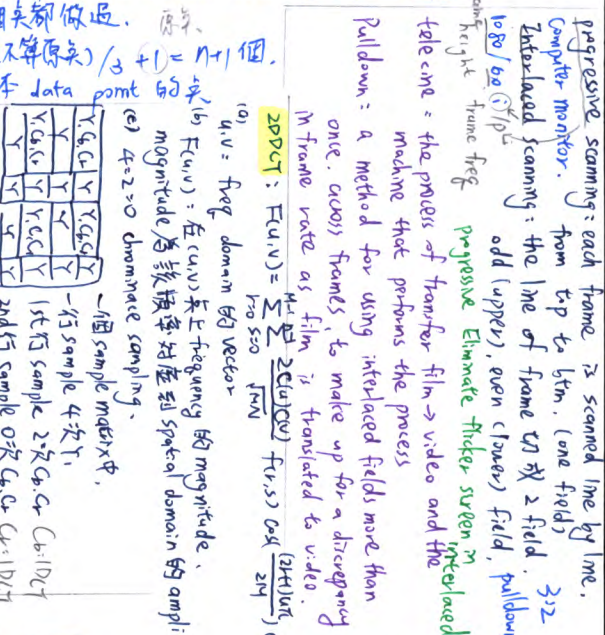 progressive scanning : each frame is scanned line by line,
Computer monitor. from top to btm. (one field)
Interlaced scanning : the line of frame 切成 2 field.
1080/60 i/p odd (upper), even (lower) field,
height frame freq
3:2 pulldown
progressive Eliminate flicker screen in interlaced
telecine = the process of transfer film → video and the
machine that performs the process
Pulldown = a method for using interlaced fields more than
once, across frames, to make up for a discrepancy
in frame rate as film is translated to video.
2DDCT : F(u,v) = Σ Σ 2C(u)C(v)/√MN f(r,s) cos( (2r+1)uπ/2M )
(a) u,v = freq domain 的 vector
(b) F(u,v) : 在(u,v)点上 frequency 的 magnitude.
magnitude 為該頻率對應到 spatial domain 的 ampli
(c) 4=2=0 chrominace sampling.
一個 sample matrix 中,
一行 sample 4次 Y.
1st行 sample 2次 Cb.Cr
2nd行 sample 0次 Cb.Cr
Cb:1DCT
Cr:1DCT
Y.Cb.Cr Y Y.Cb.Cr Y
Y Y Y Y
都做過.
(不算原点)/3 +1 = n+1 個.
data point 的点
原点.